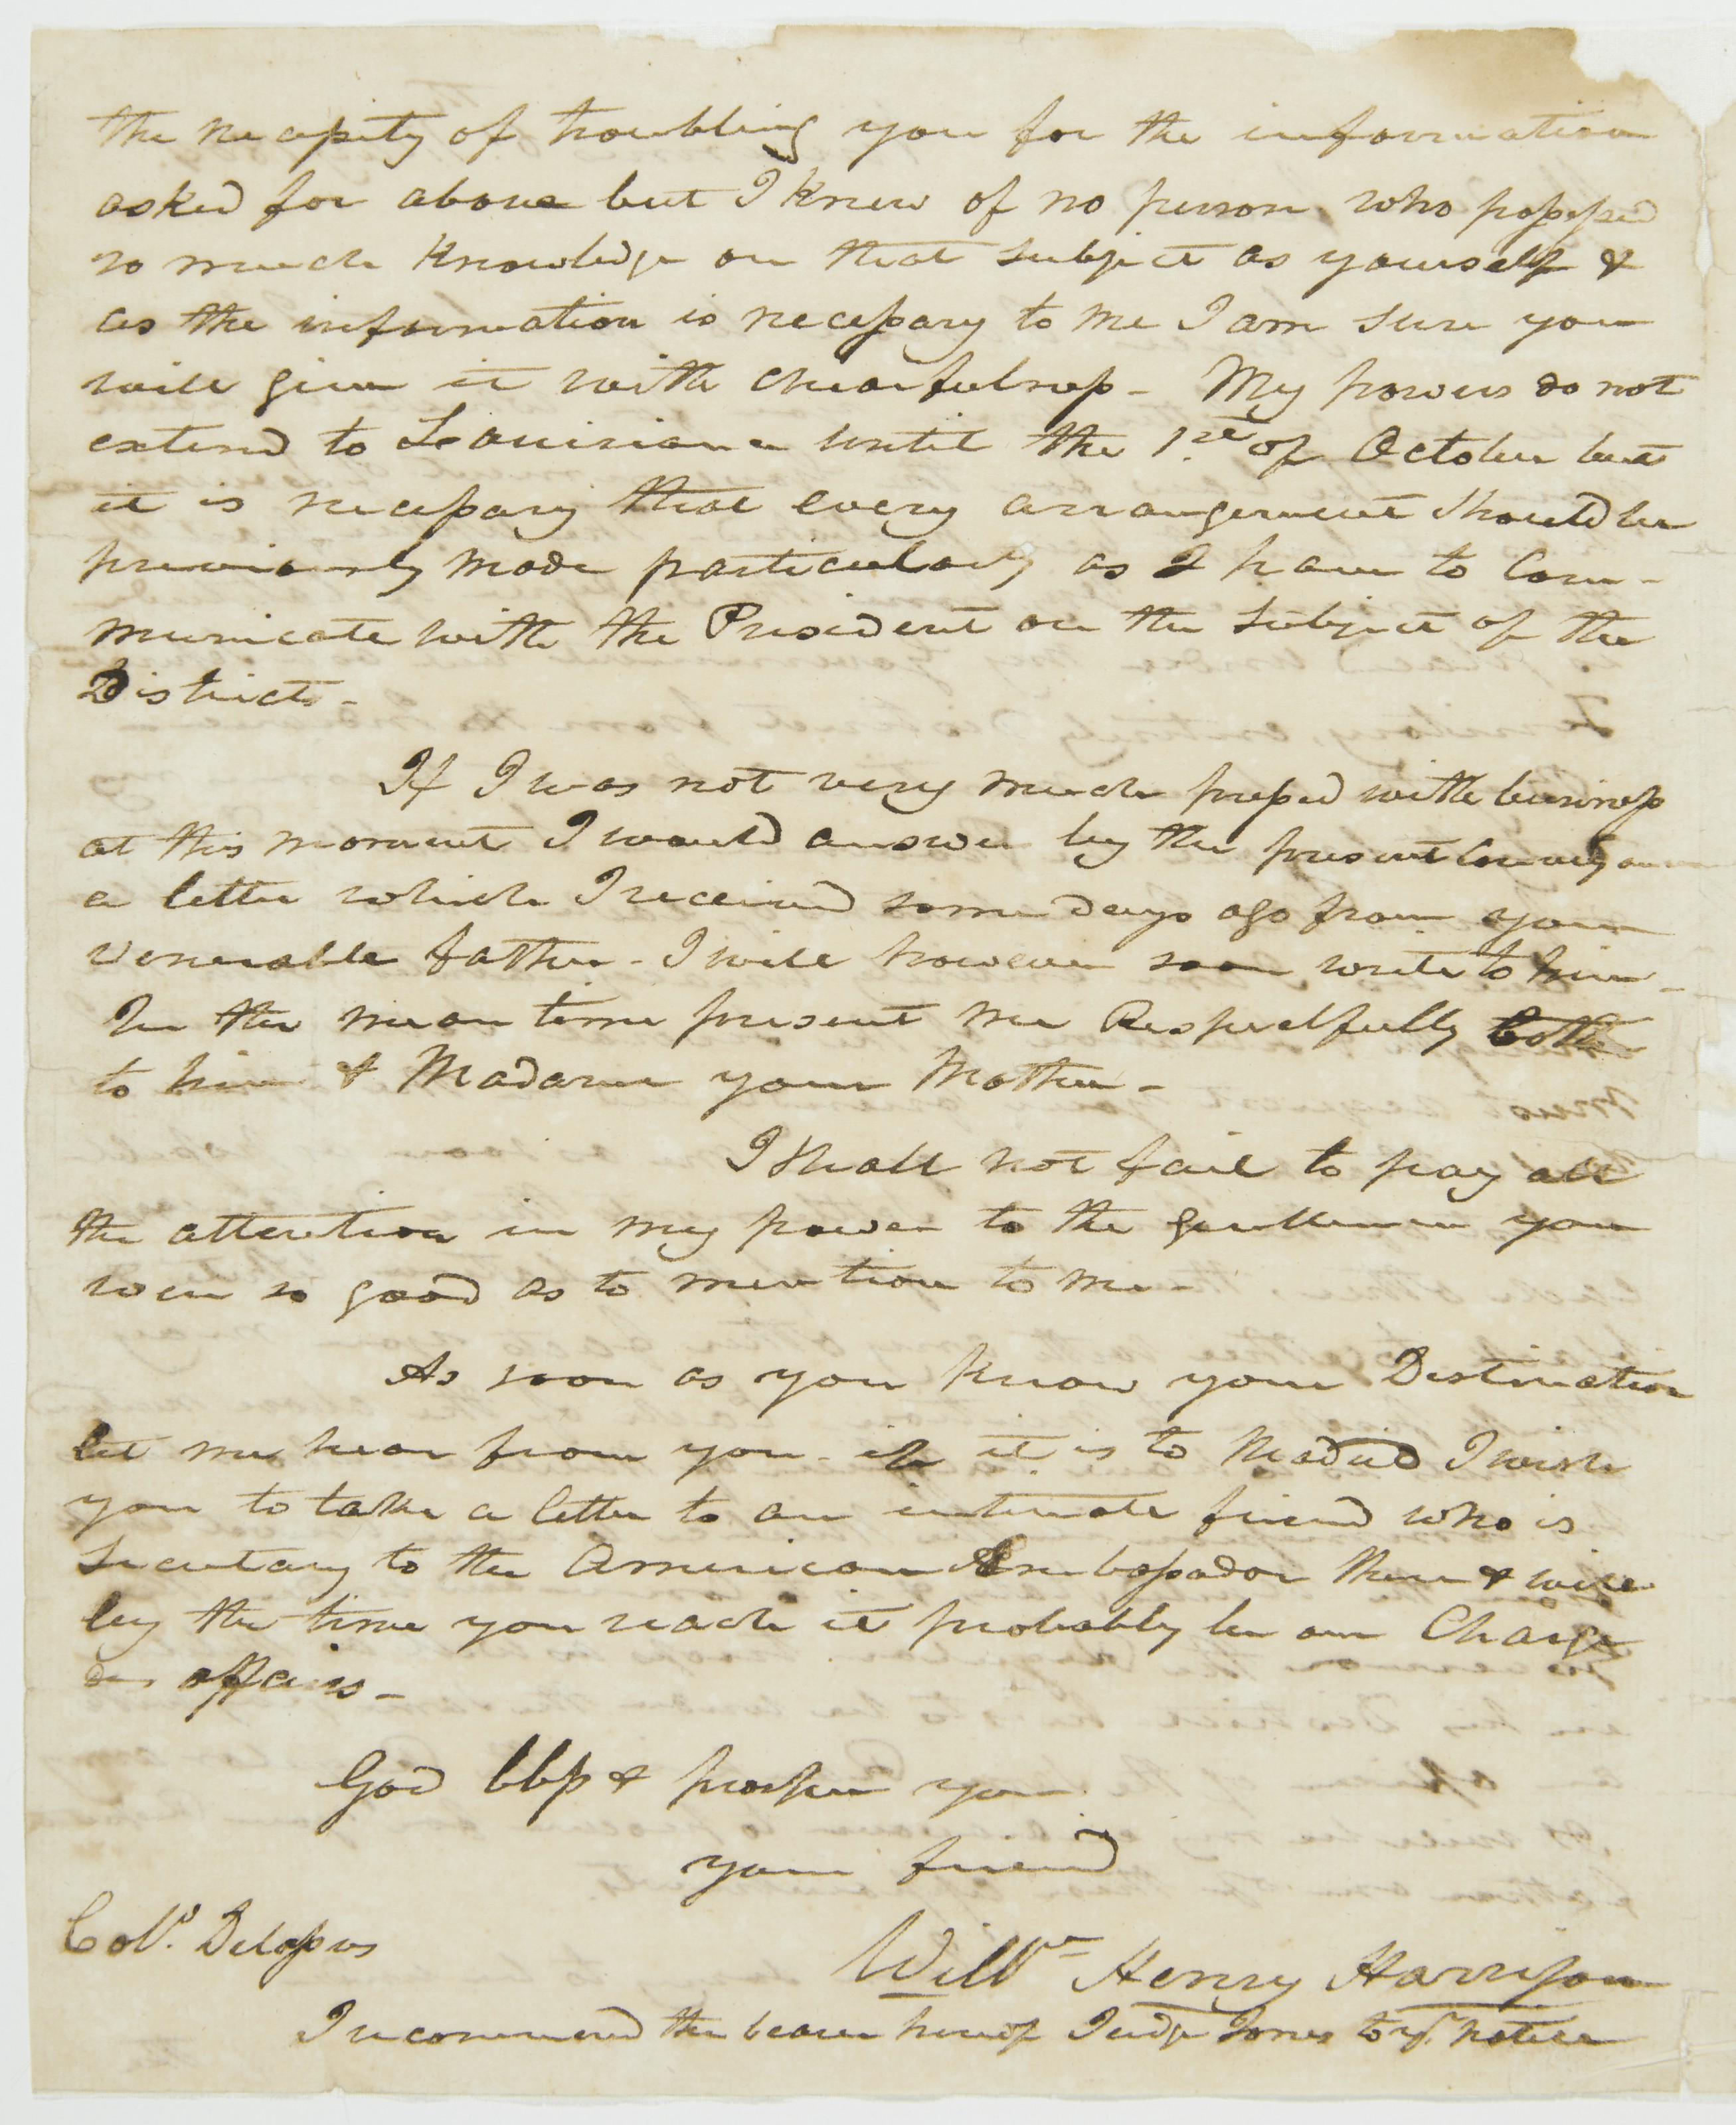 the necessity of troubling you for the information
asked for above but I knew of no person who possessed
so much knowledge on that subject as yourself &
as the information is necessary to me I am sure you
will give it with chearfulness - My powers do not
extend to Louisiana until the 1st of October but
it is necessary that every arrangement should be
previously made particularly as I have to Com-
municate with the President on the subject of the
Districts -
If I was not very much pressed with business
at this moment I would answer by the present conveyance
a letter which I received some days ago from your
venerable father - I will however soon write to him -
In the mean time present me Respectfully both
to him & Madame your Mother -
I shall not fail to pay all
the attention in my power to the gentlemen you
were so good as to mention to me -
As soon as you know your Destination
let me hear from you - if it is to Madrid I wish
you to take a letter to an intimate friend who is
Secretary to the American Ambassador there & will
by the time you reach it probably be our Charge
des affairs -
God bless & prosper you
your friend
Colo. Delassus
Willm Henry Harrison
I recommend the bearer hereof Judge Jones to yr. notice